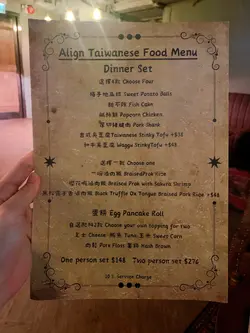 Align Taiwanese Food Menu
Dinner Set
選擇4款 Choose Four
Sweet Potato Balls
Fish Cake
Popcorn Chicken
Pork Shank
Taiwanese Stinky Tofu +$38
Wagyu Stinky Tofu +$48
選擇一款 Choose one
Braised Pork Rice
Braised Pork with Sakura Shrimp
Black Truffle Ox Tongue Braised Pork Rice +$18
蛋餅 Egg Pancake Roll
Choose your own topping for two
芝士 Cheese 吞拿魚 Tuna 玉米 Sweet Corn
肉鬆 Pork Floss 薯餅 Hash Brown
One person set $148 Two person set $276
10% Service Charge